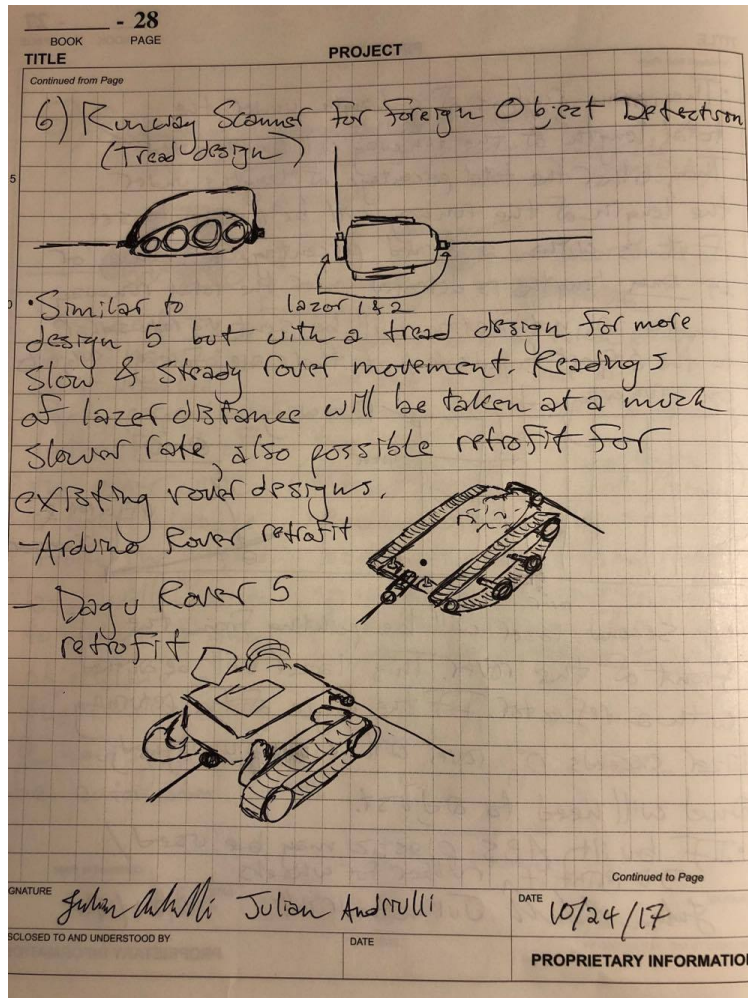 - 28
BOOK PAGE
TITLE PROJECT
Continued from Page
6) Runway Scanner for Foreign Object Detection
(Tread design)
5
lazor 1 & 2
• Similar to
design 5 but with a tread design for more
slow & steady rover movement. Readings
of lazer distance will be taken at a much
slower rate, also possible retrofit for
existing rover designs.
- Arduino Rover retrofit
- Dagu Rover 5
retrofit
Continued to Page
GNATURE Julian Andriulli DATE 10/24/17
SCLOSED TO AND UNDERSTOOD BY DATE
PROPRIETARY INFORMATIO